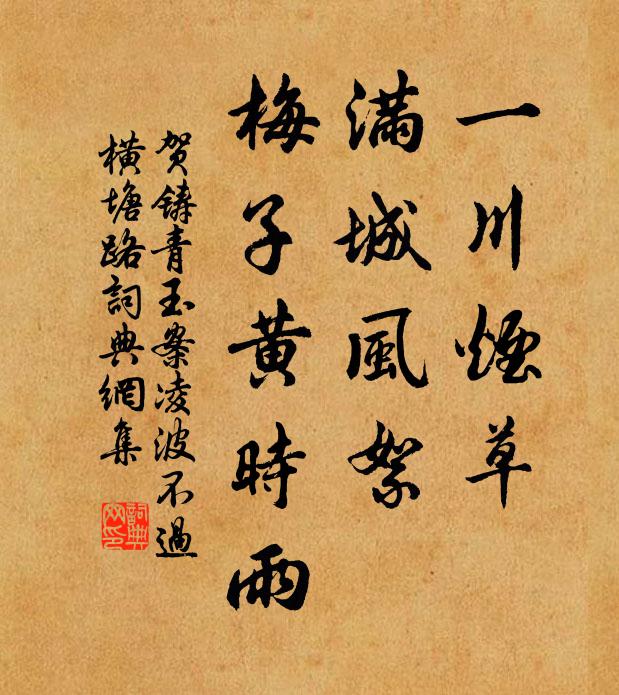 一川煙草
滿城風絮
梅子黄時雨
贺鑄青玉案凌波不過
横塘路詞典網集
詞典
网印